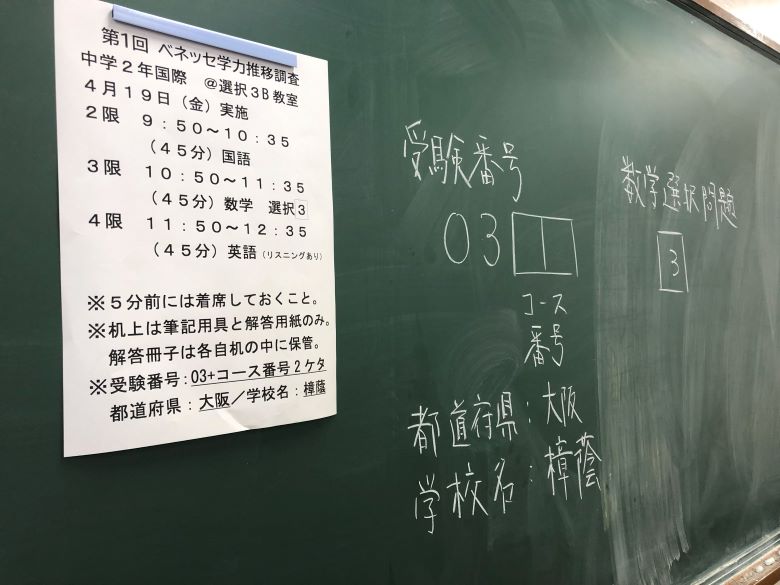 第1回 ベネッセ学力推移調査
中学２年国際　＠選択３Ｂ教室
４月１９日（金）実施
２限　９：５０～１０：３５
（４５分）国語
３限　１０：５０～１１：３５
（４５分）数学　選択3
４限　１１：５０～１２：３５
（４５分）英語（リスニングあり）
※５分前には着席しておくこと。
※机上は筆記用具と解答用紙のみ。
解答冊子は各自机の中に保管。
※受験番号：03+コース番号２ケタ
都道府県：大阪／学校名：樟蔭
受験番号
03
コース
番号
都道府県：大阪
学校名：樟蔭
数学選択問題
3